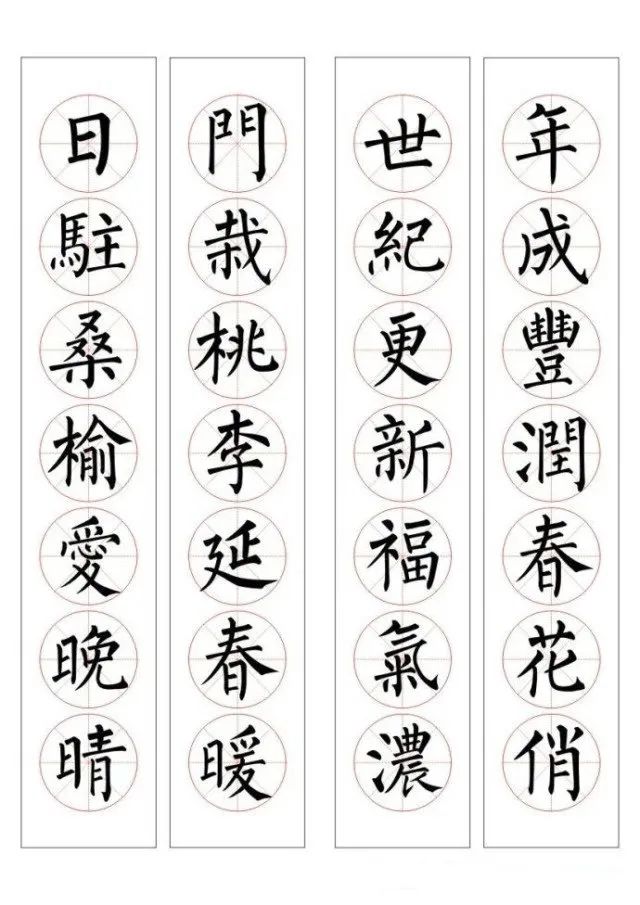 年成豐潤春花俏
世紀更新福氣濃
門栽桃李延春暖
日駐桑榆愛晚晴